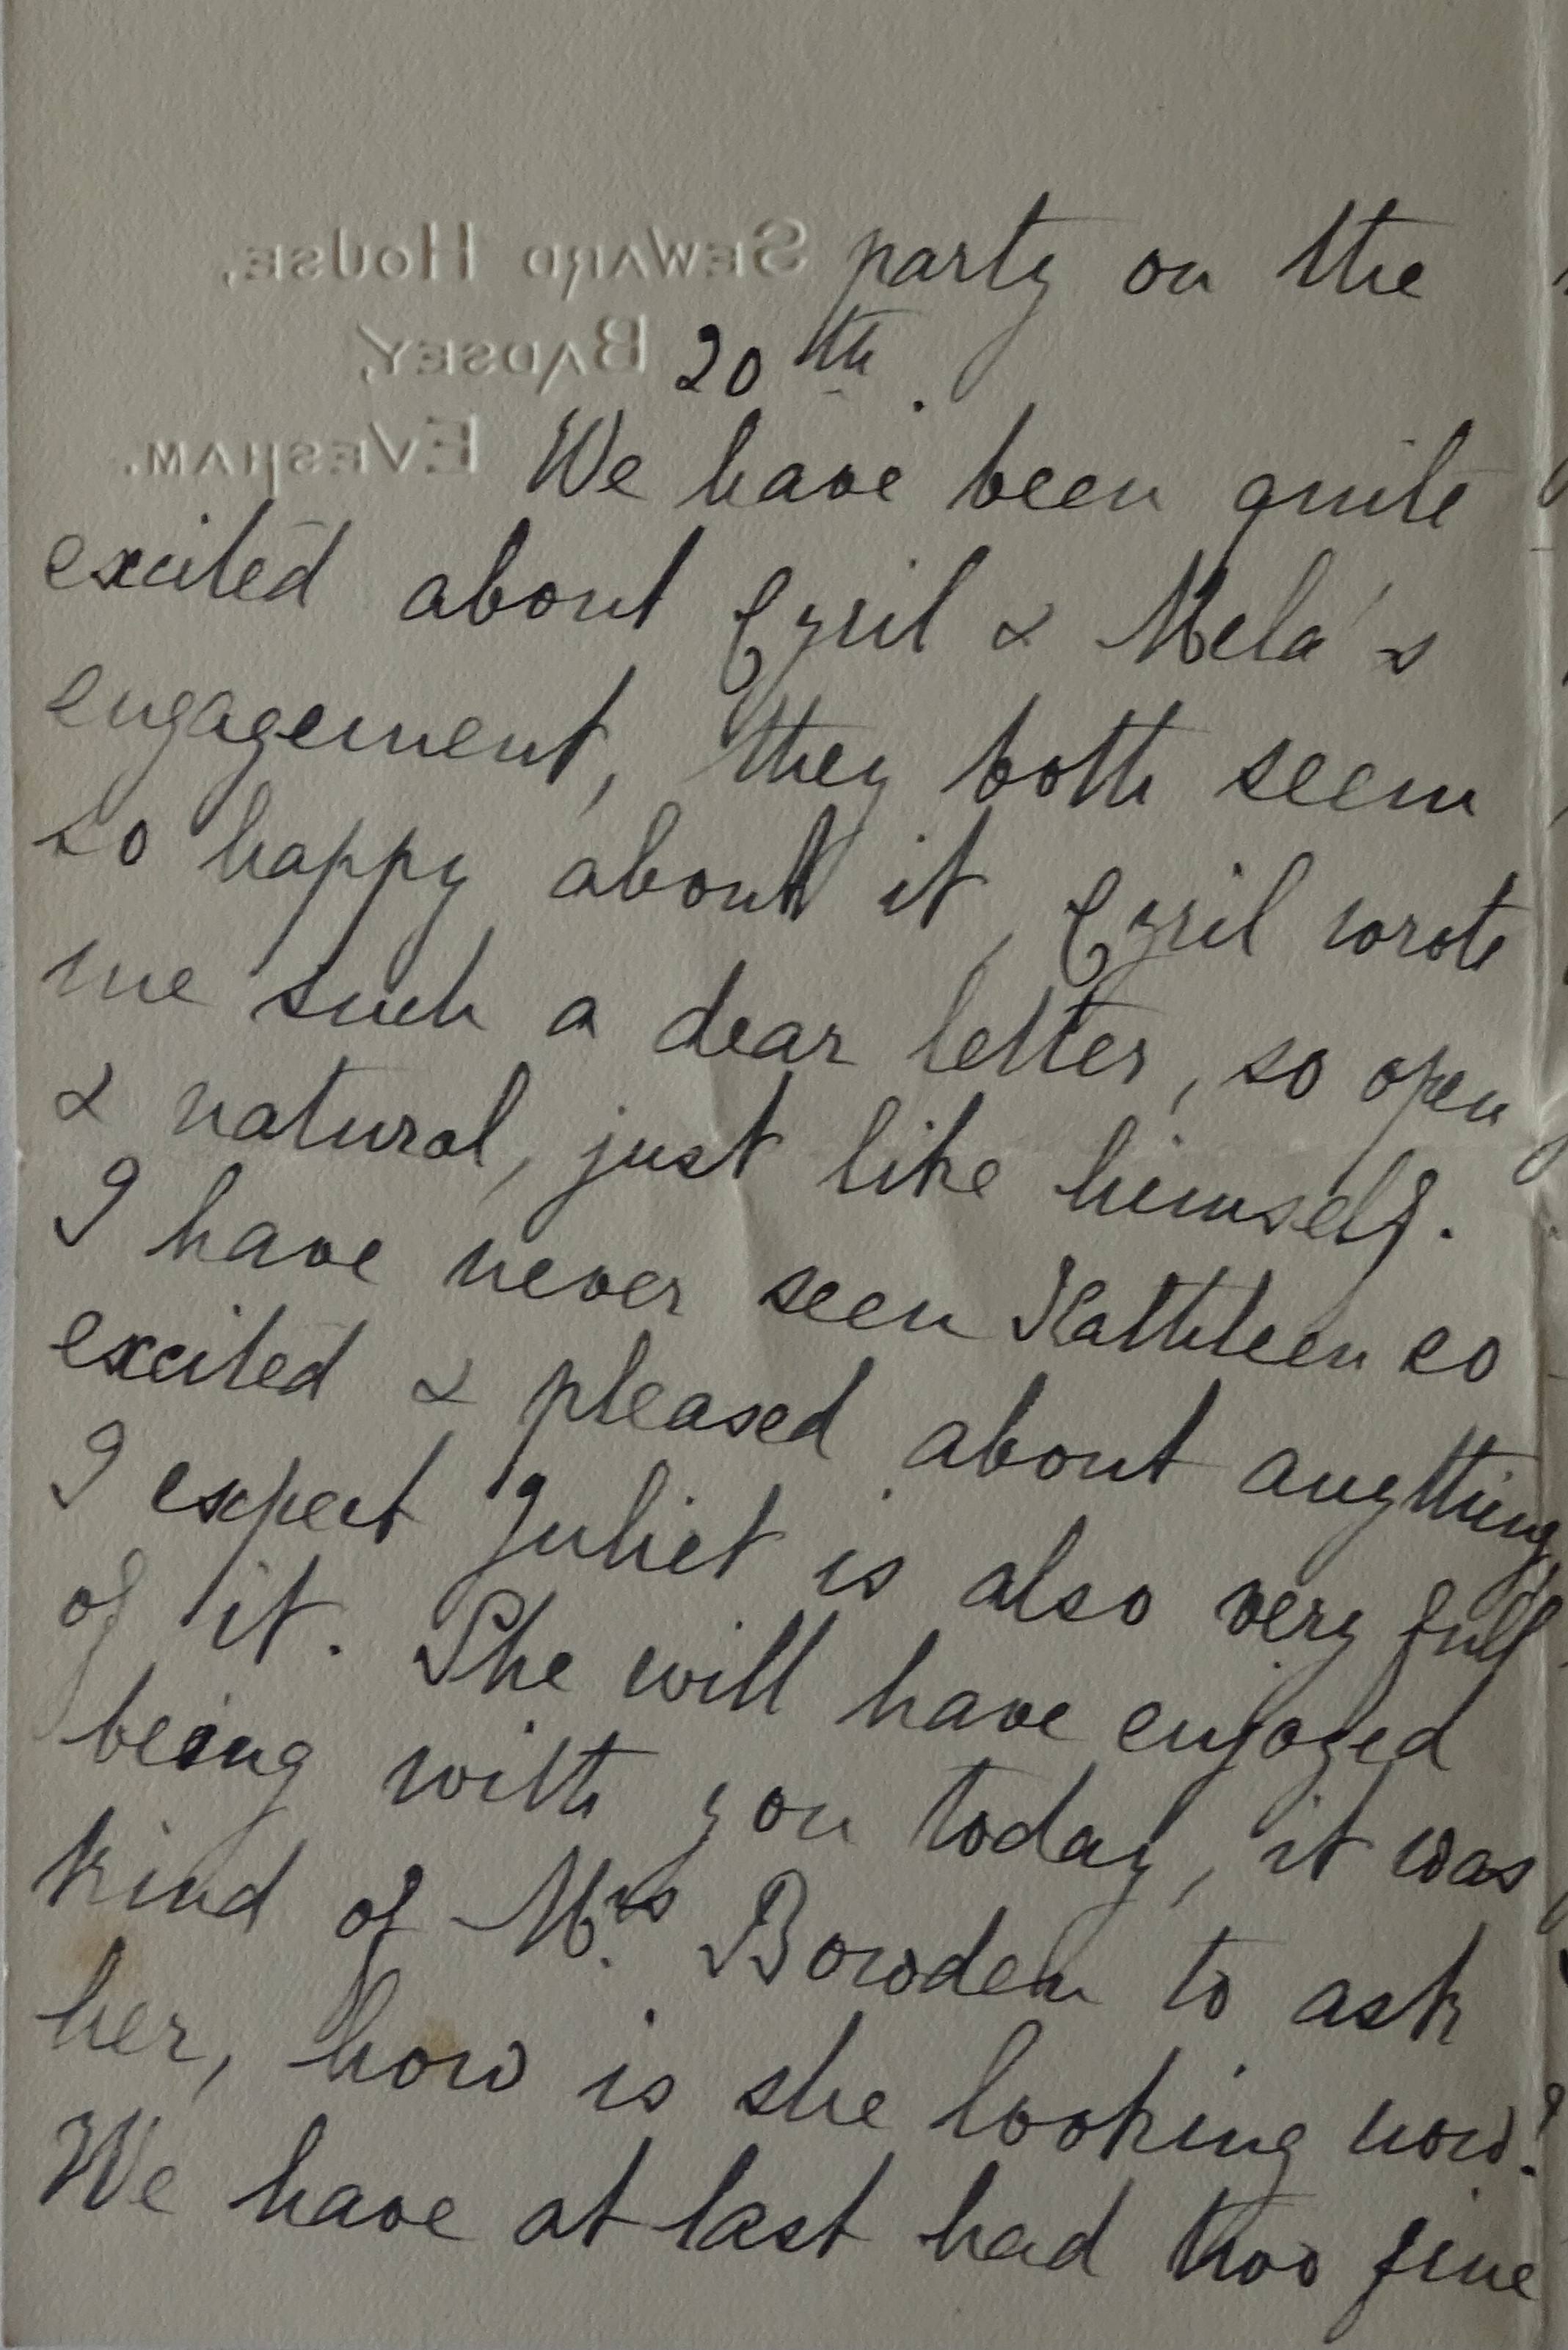 Seward House,
Badsey,
Evesham.
party on the
20th.
We have been quite
excited about Cyril & Mela's
engagement, they both seem
so happy about it, Cyril wrote
me such a dear letter, so open
& natural, just like himself.
I have never seen Kathleen so
excited & pleased about anything,
I expect Juliet is also very full
of it. She will have enjoyed
being with you today, it was
kind of Mrs. Bowden to ask
her, how is she looking now?
We have at last had two fine